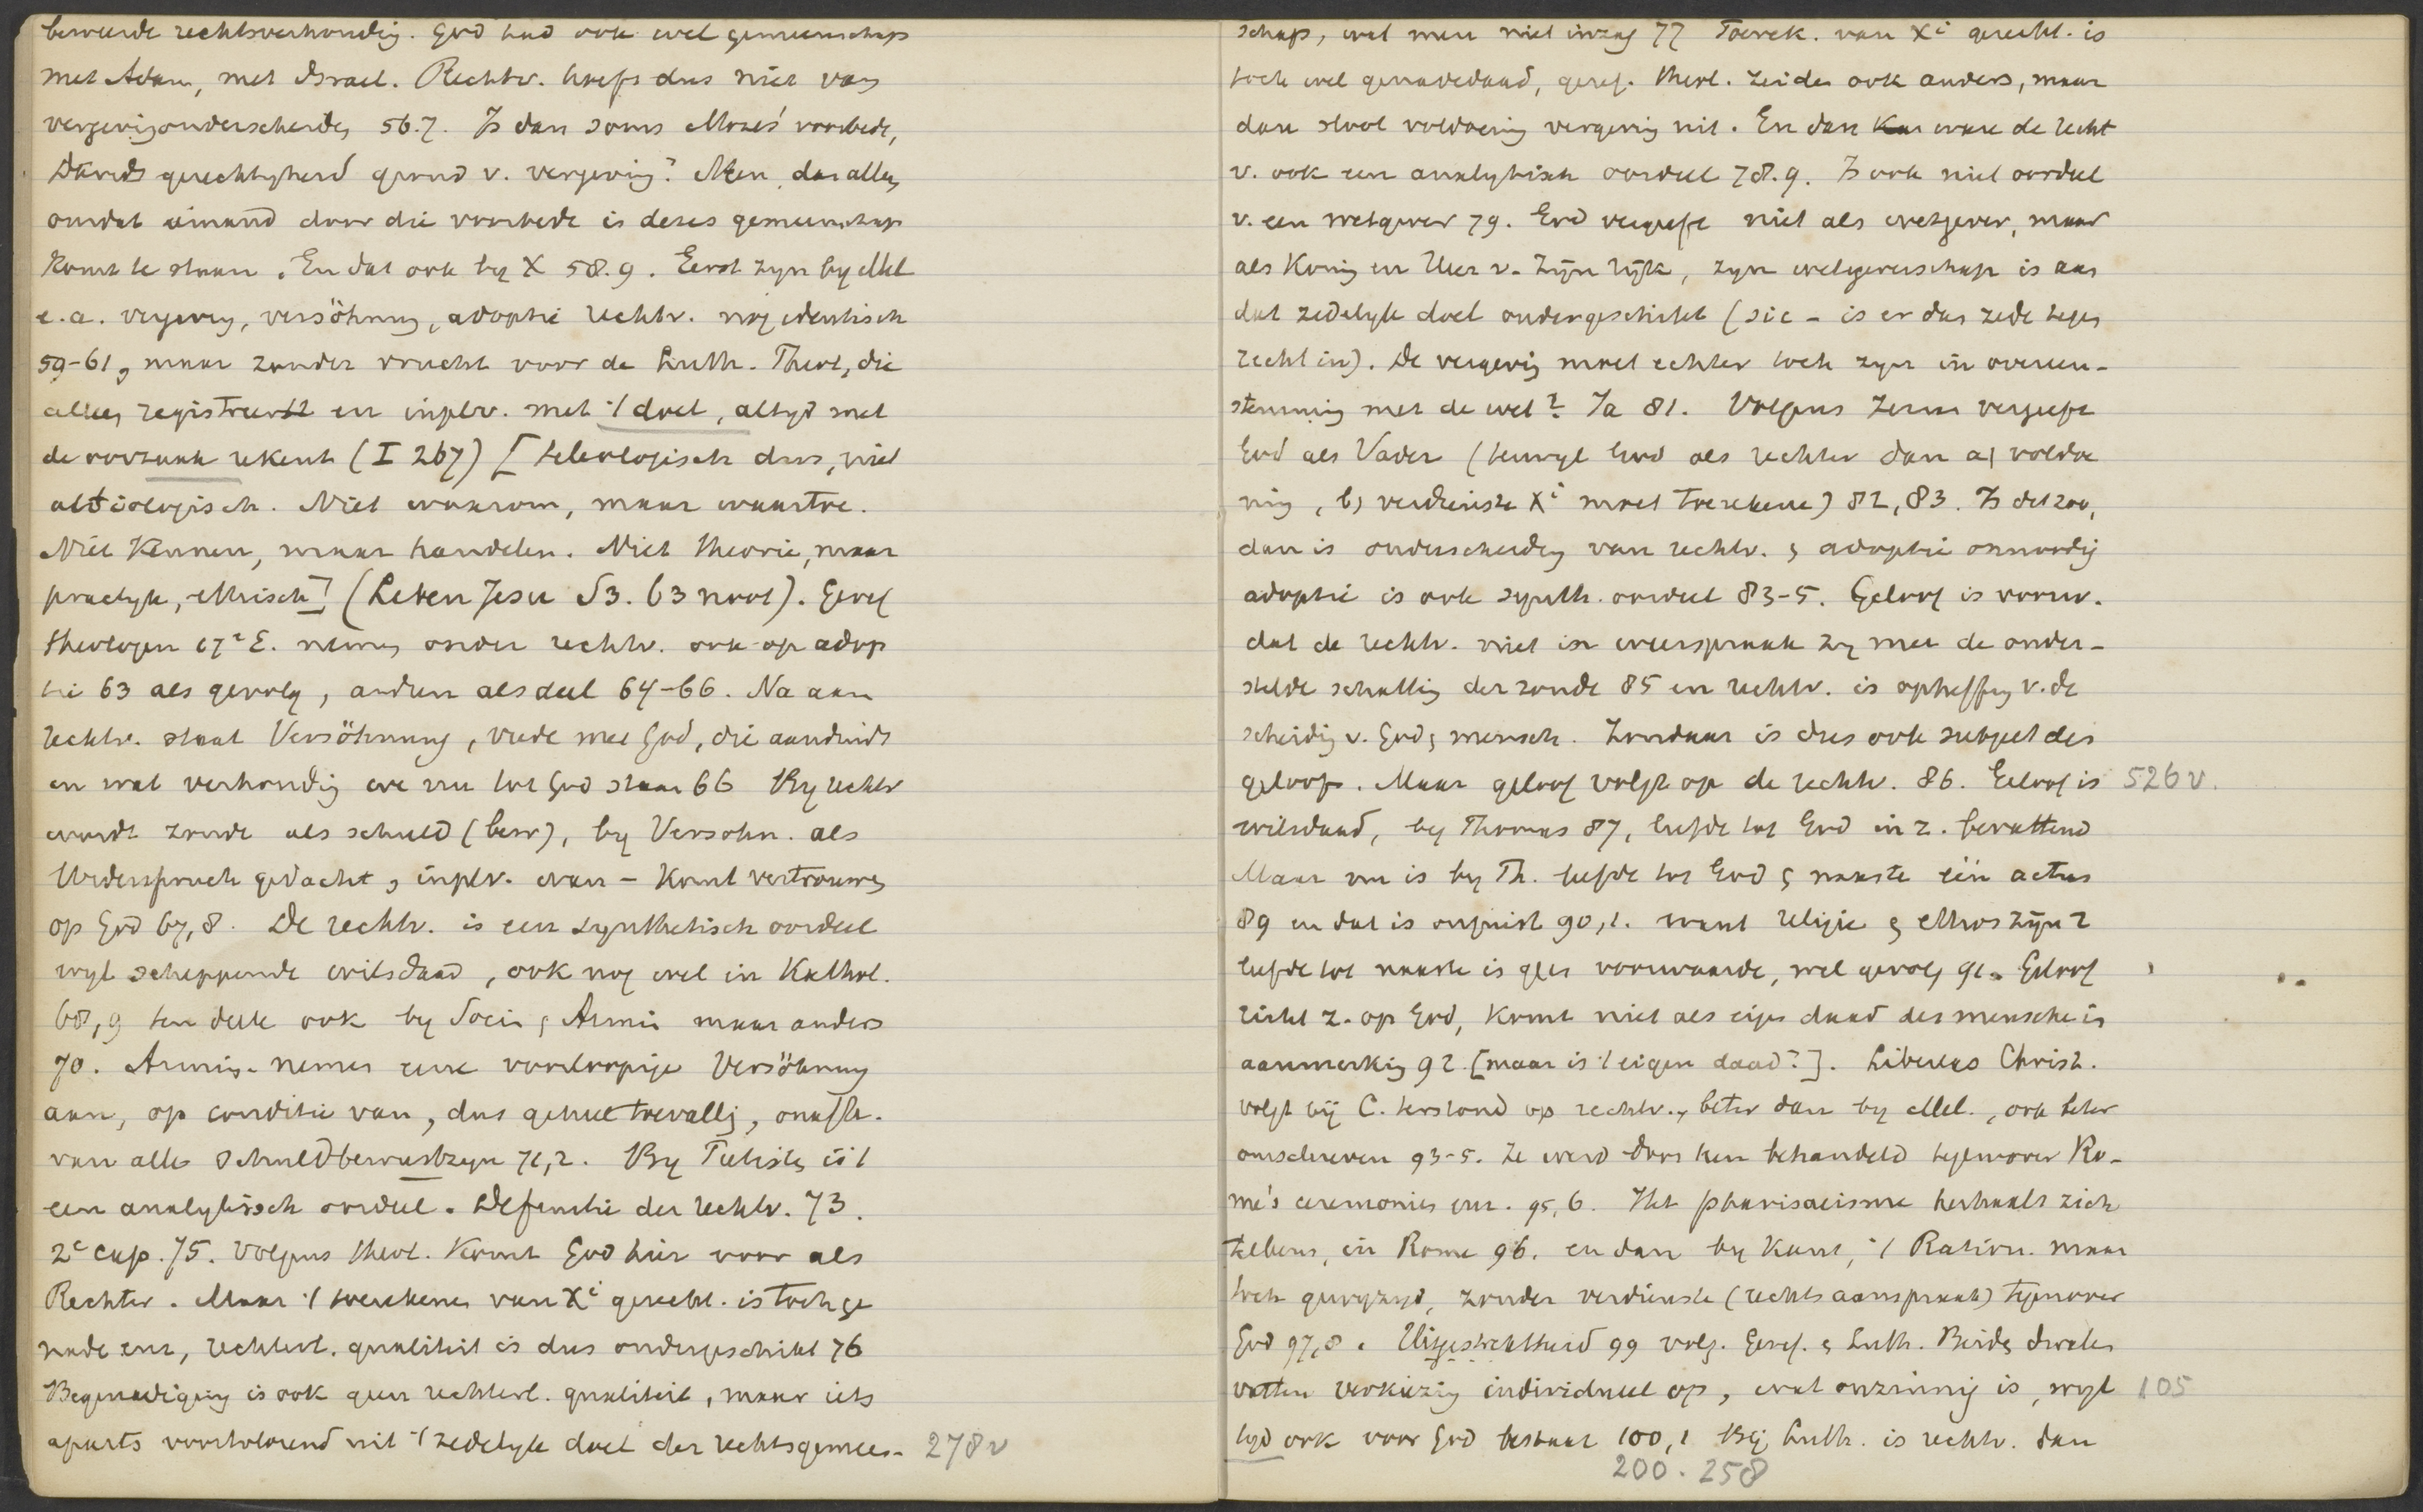 bewuste rechtsverhoudig. God had ook wel gemeenschap
met Adam, met Israel. Rechtv. hoeft dus niet van
vergevig onderscheide, 56.7. Is dan soms Mozes' voorbede,
Davids gerechtigheid grond v. vergevig? Neen, dan alles
omdat iemand door die voorbede is deses gemeenschap
komt te staan. En dat ook by X 58.9. Eerst zyn by Mel
e.a. vergevig, versöhnung, adoptie rechtv. nog identisch
59-61, maar zonder vrucht voor de Luth. Theol, die
alles registreerde en inplv. met 't doel, altyd met
de oorzaak rekent (I 267) [teleologisch dus, niet
aitiologisch. Niet waarom, maar waartoe.
Niet Kennen, maar handelen. Niet theorie, maar
practyk, ethisch] (Leben Jesu S3. 63 noot). Geref
theologen 17e E. namen onder rechtv. ook op adop
tie 63 als gevolg, andren als deel 64-66. Na aan
rechtv. staat Versöhnung, vrede met God, die aanduidt
in wat verhoudig we nu tot God staan 66 By rechtv
wordt zonde als schuld (bew), by Versohn. als
Widerspruch gedacht, inplv. wan- komt vertrouwen
op God 67,8. De rechtv. is een synthetisch oordeel
wyl scheppende wilsdaad, ook nog wel in Kathol.
68,9 ten deele ook by Soci. & Armi maar anders
70. Armin. nemen eene voorloopige Versöhnung
aan, op conditie van, dus geheel toevallig, onafh.
van alle Schuldbewustzyn 71,2. By Pietisten is 't
een analytisch oordeel. Definitie der rechtv. 73.
2e cap. 75. Volgens theol. komt God hier voor als
Rechter. Maar 't toerekenen van Xi gerecht. is toch ge
nade enz, rechterl. qualiteit is dus ondergeschikt 76
Begenadiging is ook geen rechterl. qualiteit, maar iets
aparts voortvloeiend uit 't zedelyk doel der rechtsgemeen- 278v
schap, wat men niet inzag 77 Toerek. van Xi gerecht. is
toch wel genadedaad, geref. theol. zeiden ook anders, maar
dan sloot voldoening vergevig uit. En dan ware de recht
v. ook een analytisch oordeel 78.9. Is ook niet oordeel
v. een wetgever 79. God vergeeft niet als wetgever, maar
als Konig en Heer v. Zijn rijk, zyn wetgeverschap is aan
dat zedelyk doel ondergeschikt (sic - is er dan zede tegen
recht in). De vergevig moet echter toch zyn in overeen-
stemming met de wet? Ja 81. Volgens hem vergeeft
God als Vader (terwyl God als rechter dan a) voldoe
ning, b) verdienste Xi moet toerekene) 82,83. Is dat zoo,
dan is onderscheidig van rechtv. & adoptie onnoodig
adoptie is ook synth. oordeel 83-5. Geloof is voorw.
dat de rechtv. niet in weerspraak zy met de onder-
stelde schatting der zonde 85 en rechtv. is opheffing v. de
scheidig v. God & mensch. Zondaar is dus ook subject des
geloofs. Maar geloof volgt op de rechtv. 86. Geloof is 526v.
wilsdaad, by Thomas 87, liefde tot God in z. bevattend
Maar nu is by Th. liefde tot God & naaste één actus
89 en dat is onjuist 90,1. want religie & ethos zijn 2
liefde tot naaste is geen voorwaarde, wel gevolg 91. Geloof
richt z. op God, komt niet als eigen daad des mensche in
aanmerkig 92. [maar is 't eigen daad?]. Libertas Christ.
volgt bij C. terstond op rechtv., beter dan by Mel., ook beter
omschreven 93-5. Ze werd door hen behandeld tegenover Ro-
me's ceremonies enz. 95,6. Het pharisaeisme herhaalt zich
telkens, in Rome 96. en dan by Kant, 't Ration. maar
toch gewyzigd, zonder verdienste (rechtsaanspraak) tegenover
God 97,8. Uitgestrektheid 99 volg. Geref. & Luth. Beide dwalen
vatten verkiezig individueel op, wat onzinnig is, wyl 105
tyd ook voor God bestaat 100,1 Bij Luth. is rechtv. dan
200. 258